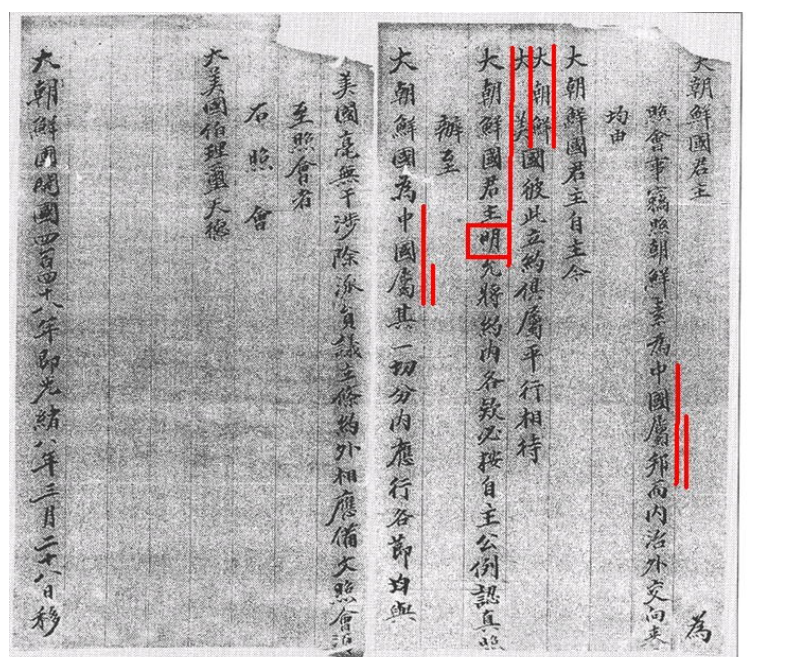 大朝鮮國君主 為
照會事竊照朝鮮素為中國屬邦而内治外交向來
均由
大朝鮮國君主自主今
大朝鮮
大美國彼此立約俱屬平行相待
大朝鮮國君主明允將約内各欵必按自主公例認真照
辦至
大朝鮮國為中國屬其一切分内應行各節均與
美國毫無干涉除派員議立條約外相應備文照會須
至照會者
右照會
大美國伯理璽天德
大朝鮮國開國四百四十八年即光緒八年三月二十八日移